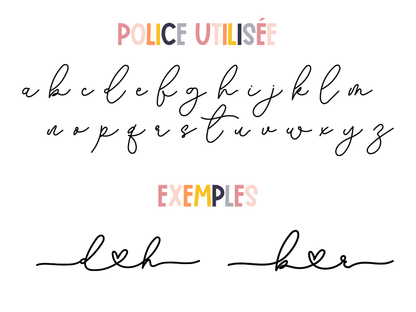 POLICE UTILISÉE
a b c d e f g h i j k l m
n o p q r s t u v w x y z
EXEMPLES
d♡h b♡r